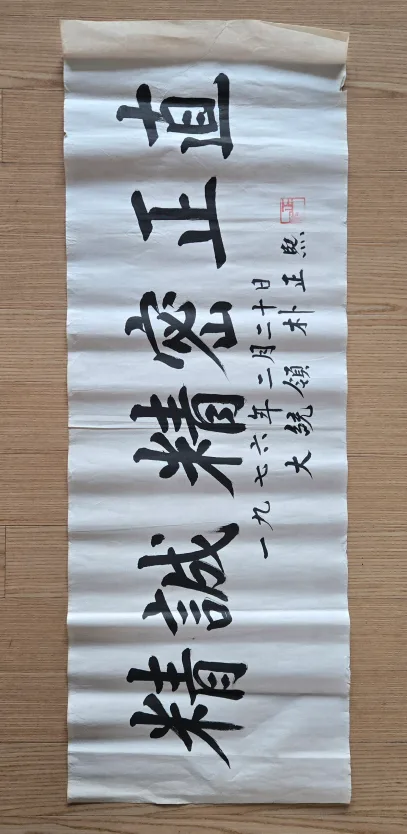 精誠精密正直
一九七六年二月二十日
大統領朴正熙